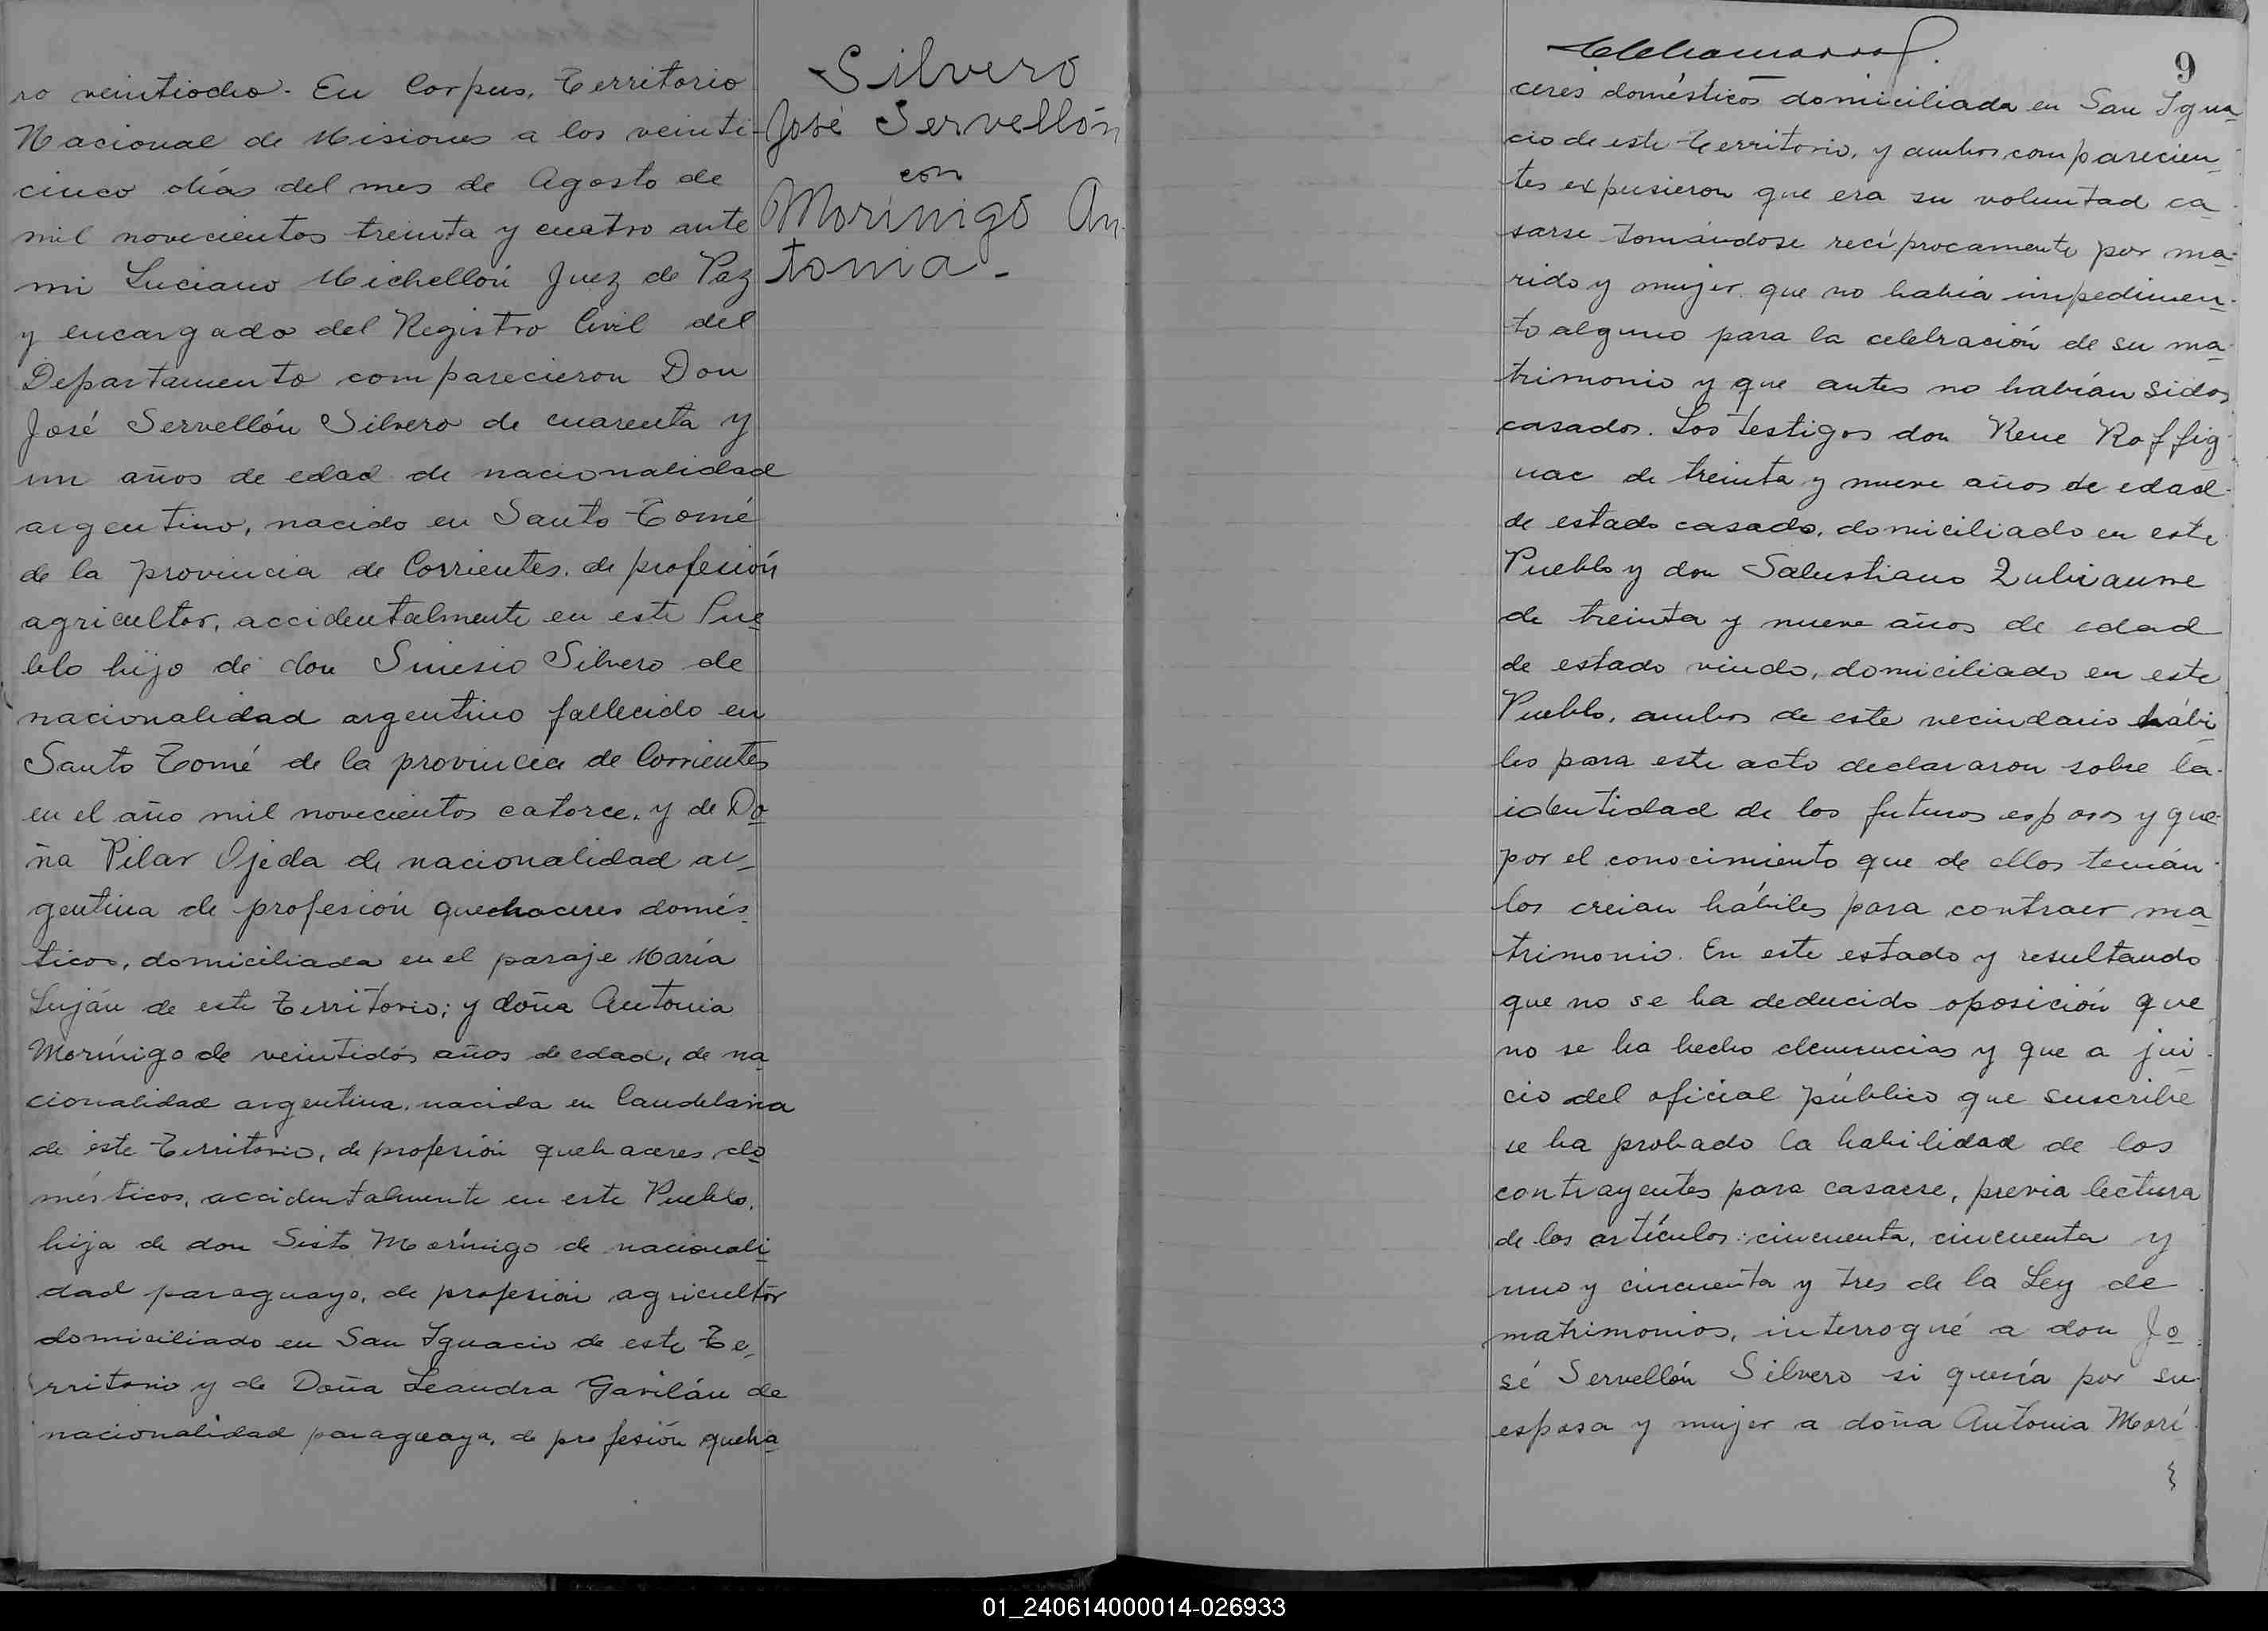 ro veintiocho. En Corpus, Territorio
Nacional de Misiones a los veinti-
cinco días del mes de Agosto de
mil novecientos treinta y cuatro ante
mi Luciano Michellón Juez de Paz
y encargado del Registro Civil del
Departamento comparecieron Don
José Servellón Silvero de cuarenta y
un años de edad de nacionalidad
argentino, nacido en Santo Tomé
de la provincia de Corrientes, de profesión
agricultor, accidentalmente en este Pue
blo hijo de don Sinesio Silvero de
nacionalidad argentino fallecido en
Santo Tomé de la provincia de Corrientes
en el año mil novecientos catorce, y de Do
ña Pilar Ojeda de nacionalidad ar_
gentina de profesión quehaceres domés
ticos, domiciliada en el paraje María
Luján de este Territorio; y doña Antonia
Morínigo de veintidós años de edad, de na
cionalidad argentina, nacida en Candelaria
de este Territorio, de profesión quehaceres do
mésticos, accidentalmente en este Pueblo,
hija de don Sisto Morínigo de nacionali
dad paraguayo, de profesión agricultor
domiciliado en San Ignacio de este Te_
rritorio y de Doña Leandra Gavilán de
nacionalidad paraguaya, de profesión queha
Silvero
José Servellón
con
Morínigo An
tonia.-
9
ceres domésticos domiciliada en San Igna
cio de este Territorio, y ambos comparecien
tes expusieron que era su voluntad ca
sarse tomándose recíprocamente por ma
rido y mujer, que no había impedimen
to alguno para la celebración de su ma
trimonio y que antes no habían sidos
casados. Los testigos don Rene Roffig
nac de treinta y nueve años de edad
de estado casado, domiciliado en este
Pueblo y don Salustiano Zubiaurre
de treinta y nueve años de edad
de estado viudo, domiciliado en este
Pueblo, ambos de este vecindario hábi
les para este acto declararon sobre la
identidad de los futuros esposos y que
por el conocimiento que de ellos tenían
los creian hábiles para contraer ma
trimonio. En este estado y resultando
que no se ha deducido oposición que
no se ha hecho denuncias y que a jui
cio del oficial público que suscribe
se ha probado la habilidad de los
contrayentes para casarse, previa lectura
de los artículos: cincuenta, cincuenta y
uno y cincuenta y tres de la Ley de
matrimonios, interrogué a don Jo
sé Servellón Silvero si quería por su
esposa y mujer a doña Antonia Morí
01_240614000014-026933